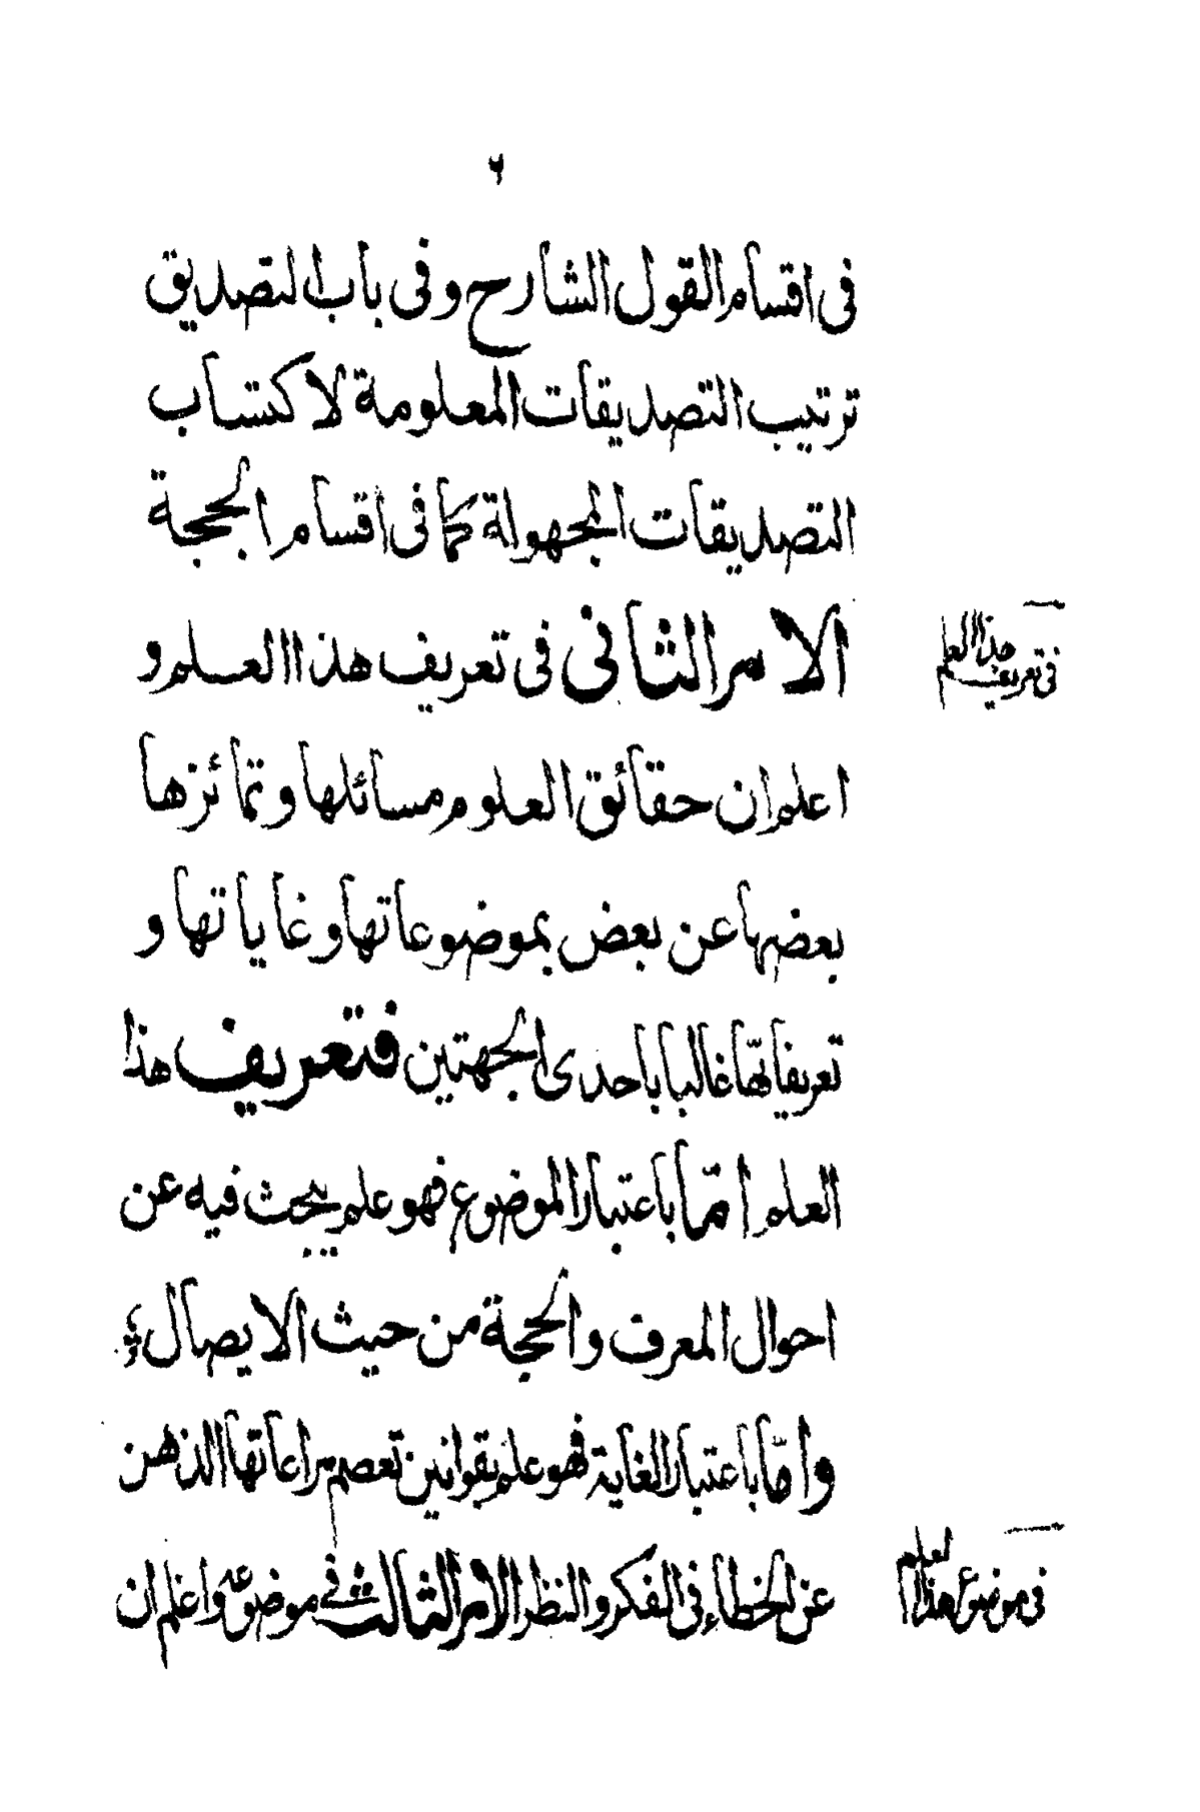 ٦
فى اقسام القول الشارح وفى باب التصديق
ترتيب التصديقات المعلومة لاكتساب
التصديقات المجهولة كما فى اقسام الحجة
الامر الثانى فى تعريف هذا العلم و
فى تعريف هذا العلم
اعلم ان حقائق العلوم مسائلها وتمائزها
بعضها عن بعض بموضوعاتها وغاياتها و
تعريفاتها غالبا باحدى الجهتين فتعريف هذا
العلم امّا باعتبار الموضوع فهو علم يبحث فيه عن
احوال المعرف والحجة من حيث الايصال
وامّا باعتبار الغاية فهو علم بقوانين تعصم مراعاتها الذهن
عن الخطاء فى الفكر والنظر الامر الثالث فى موضوعه واعلم ان
فى موضوع هذا العلم